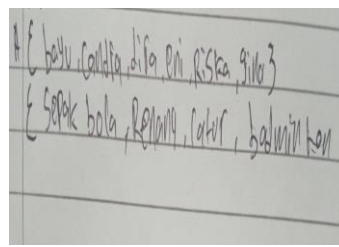 A { bayu, candra, difa, eri, Riska, gino }
{ Sepak bola, Renang, catur, badminton